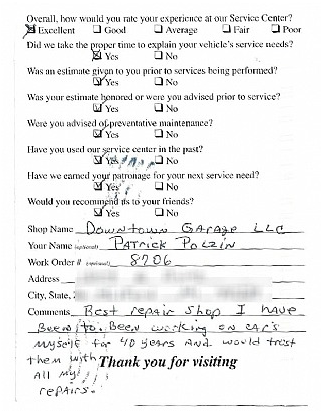 Overall, how would you rate your experience at our Service Center?
Excellent Good Average Fair Poor
Did we take the proper time to explain your vehicle's service needs?
Yes No
Was an estimate given to you prior to services being performed?
Yes No
Was your estimate honored or were you advised prior to service?
Yes No
Were you advised of preventative maintenance?
Yes No
Have you used our service center in the past?
Yes No
Have we earned your patronage for your next service need?
Yes No
Would you recommend us to your friends?
Yes No
Shop Name Downtown Garage LLC
Your Name (optional) Patrick Polzin
Work Order # (optional) 8706
Address
City, State,
Comments Best repair shop I have
Been to. Been working on car's
myself for 40 years And would trust
them with Thank you for visiting
All my
repairs.